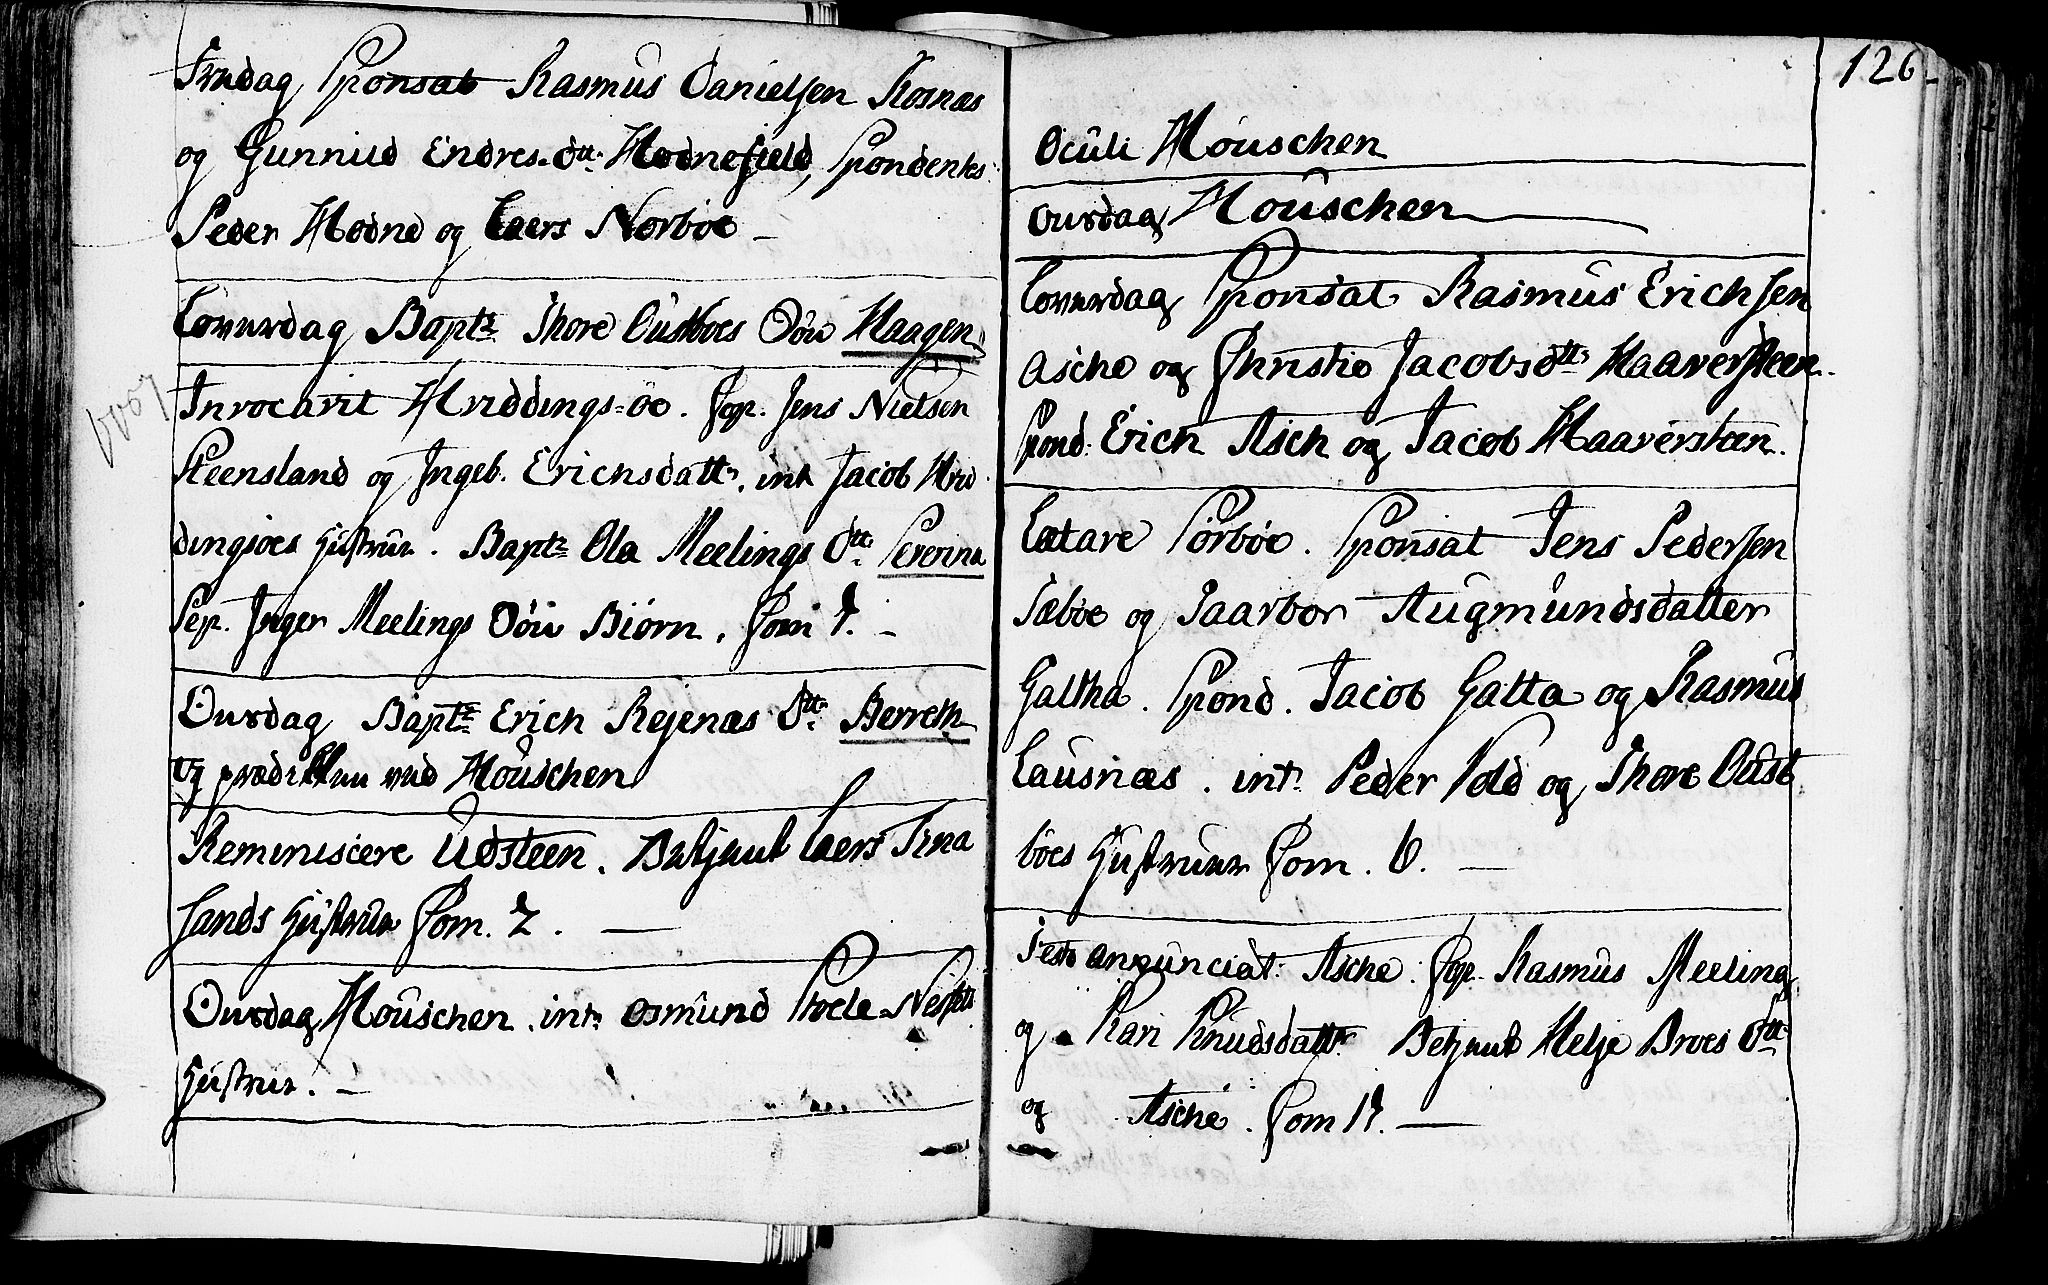 Fredag Sponsat Rasmus Danielsen Rosnæs
og Gunnild Endres dtt. Hodnefield, Spondentes
Peder Hodne og Laers Norbøe –
Løverdag Bapt: Thore Oustboes Søn Haagen
Invocavit Hviddings-öe. Cop. Jens Nielsen
Steensland og Ingeb. Erichsdatt:, int Jacob Hvid-
dingsöes Hustrue. Bapt: Ola Meelings dtt: Pererina
Sep. Inger Meelings Søn Biörn. Com 7. –
Onsdag Bapt: Erich Rejenæs dtt: Berreth
og prædikken ved Mouschen
Reminiscere Udsteen. Betjent Laers
lands Hustrue Com. 2. —
Onsdag Mouschen. int: Osmund
Hustrue. –
126
Oculi Mouschen
Onsdag Mouschen
Løverdag Sponsat Rasmus Erichsen
Asche og Christie Jacobsdtt: Haaversteen.
Spond: Erich Asch og Jacob Haaversteen.
Lætare Sörböe. Sponsat Jens Pedersen
Sæböe og Gaarbor Augmundsdatter
Galtha. Spond. Jacob Galta og Rasmus
Lausnæs. int: Peder Vold og Thore Oust
böes Hustruer Com. 6. —
Festo anpunciat: Asche. Cop. Rasmus Meeling
og Kari Knudsdatt: Betjent Helje Broes dtt:
og Asche. Com 17. —